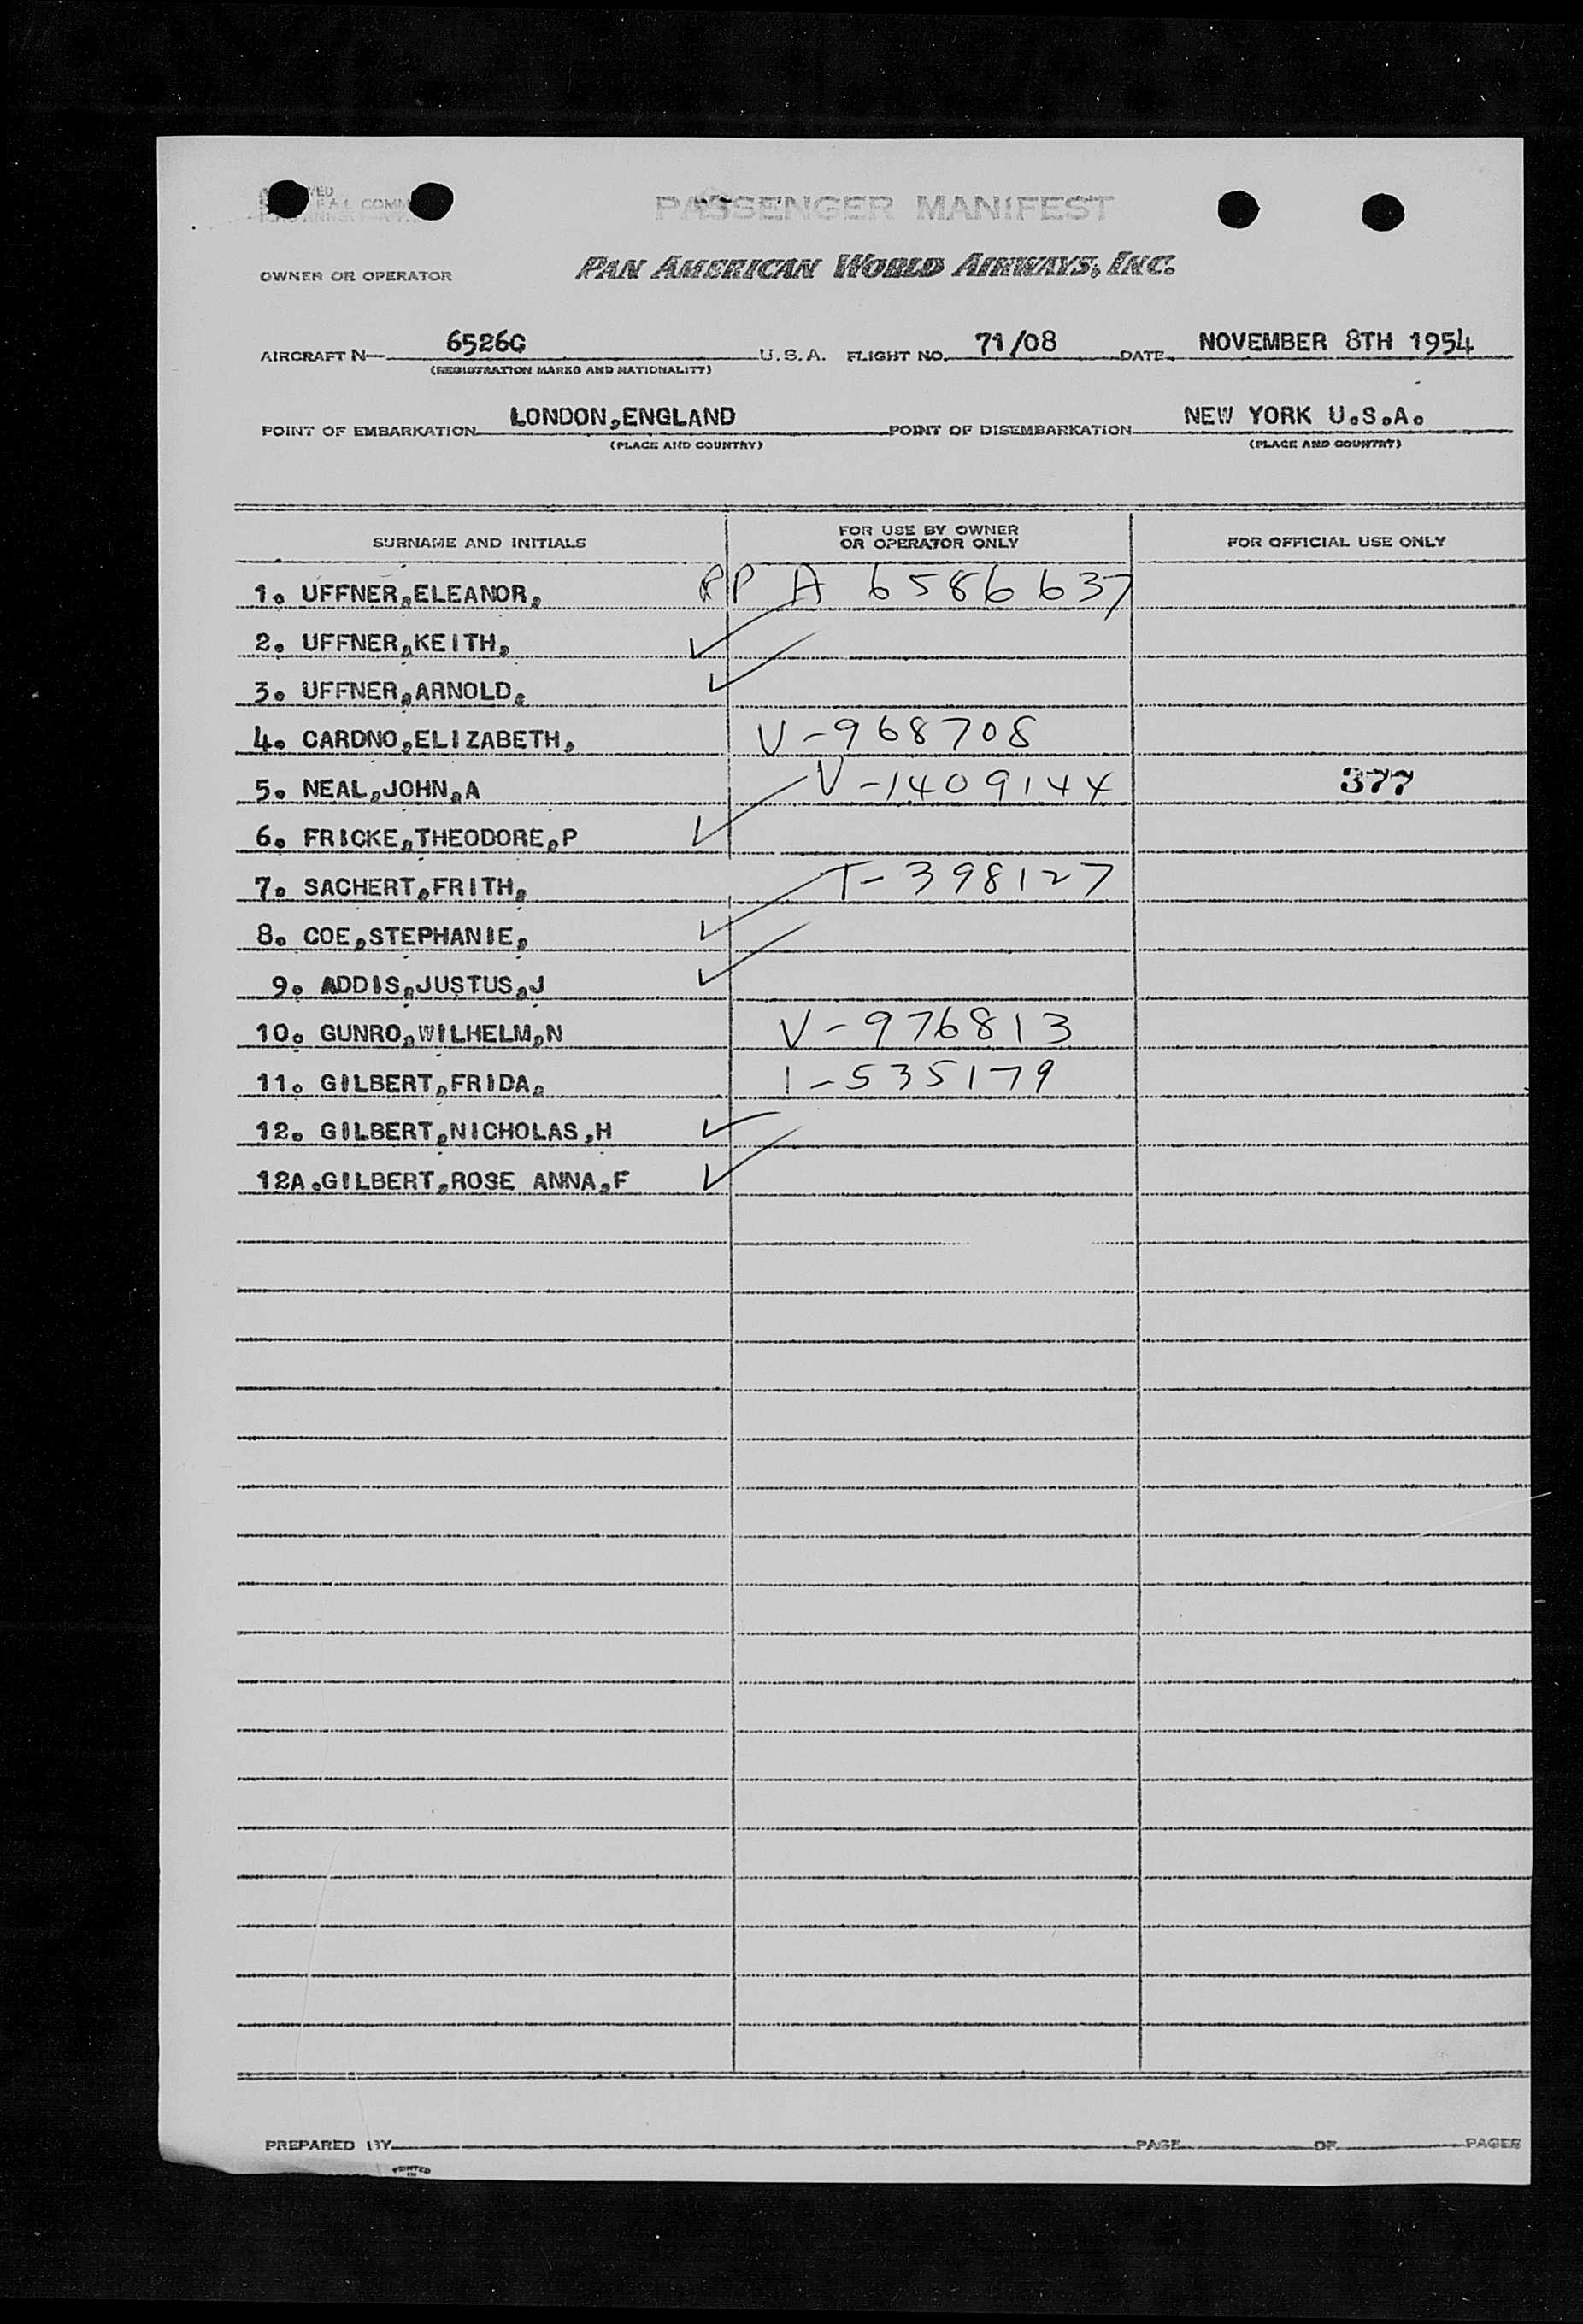 PASSENGER MANIFEST
OWNER OR OPERATOR PAN AMERICAN WORLD AIRWAYS, INC.
AIRCRAFT N— 6526C U.S.A. FLIGHT NO. 71/08 DATE NOVEMBER 8TH 1954
(REGISTRATION MARKS AND NATIONALITY)
POINT OF EMBARKATION LONDON,ENGLAND POINT OF DISEMBARKATION NEW YORK U.S.A.
(PLACE AND COUNTRY) (PLACE AND COUNTRY)
SURNAME AND INITIALS FOR USE BY OWNER OR OPERATOR ONLY FOR OFFICIAL USE ONLY
1. UFFNER,ELEANOR, RP A 6586637
2. UFFNER,KEITH,
3. UFFNER,ARNOLD,
4. CARDNO,ELIZABETH, V-968708
5. NEAL,JOHN,A V-1409144 377
6. FRICKE,THEODORE,P
7. SACHERT,FRITH, T-398127
8. COE,STEPHANIE,
9. ADDIS,JUSTUS,J
10. GUNRO,WILHELM,N V-976813
11. GILBERT,FRIDA, I-535179
12. GILBERT,NICHOLAS,H
12A.GILBERT,ROSE ANNA,F
PREPARED BY PAGE OF PAGES
PRINTED
IN